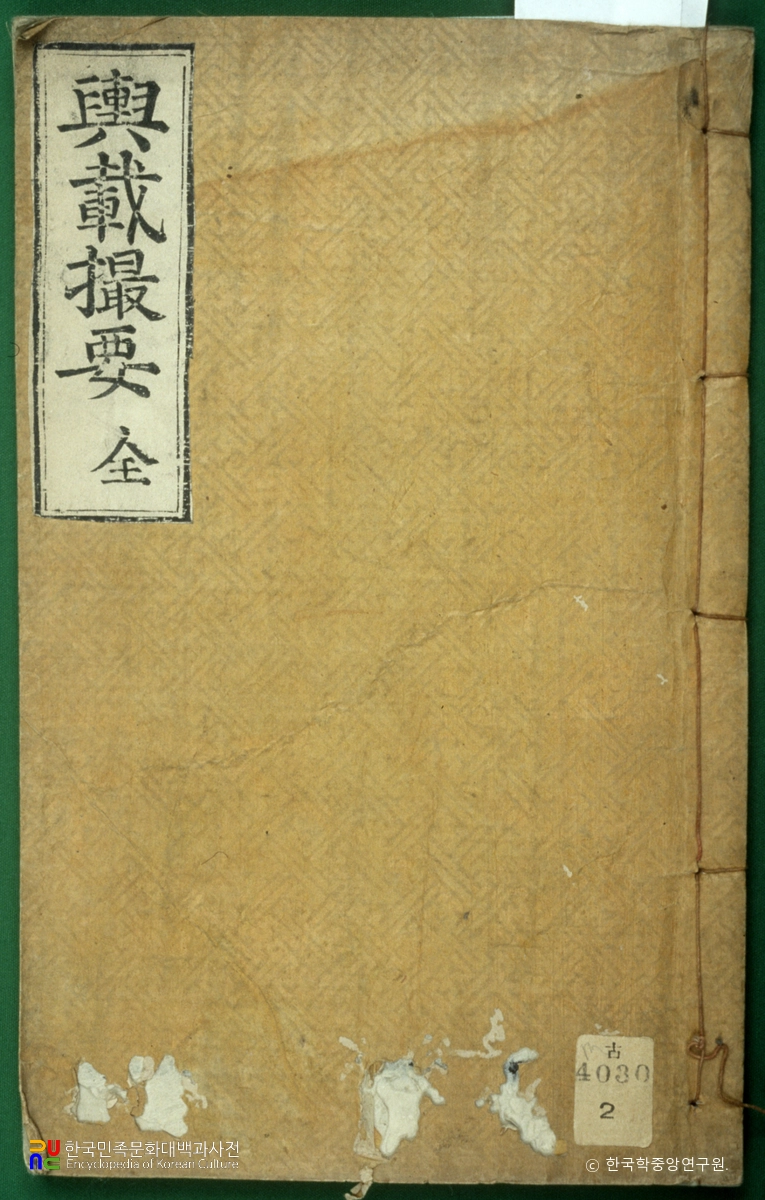 輿載撮要 全
古
4030
2
한국민족문화대백과사전
Encyclopedia of Korean Culture
© 한국학중앙연구원.